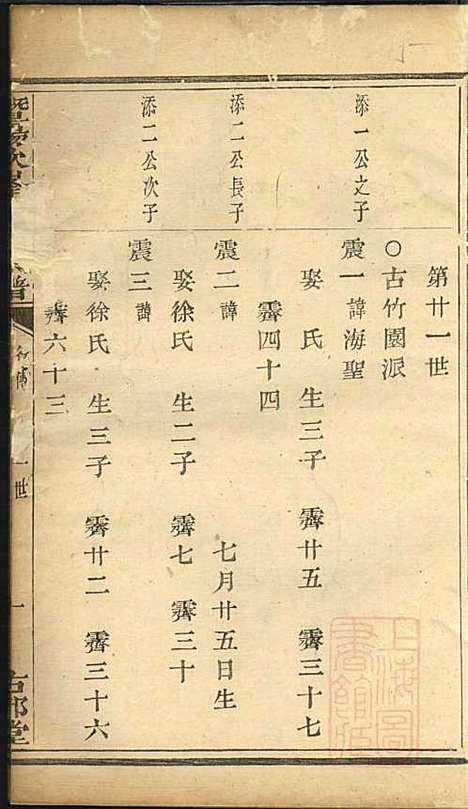 第廿一世
○古竹園派
添一公之子
震一 諱海聖
娶 氏 生三子 霽廿五 霽三十七
霽四十四
添二公長子
震二 諱 七月廿五日生
娶徐氏 生二子 霽七 霽三十
添二公次子
震三 諱
娶徐氏 生三子 霽廿二 霽三十六
霽六十三
一世
一
古邨堂
上海圖書館藏